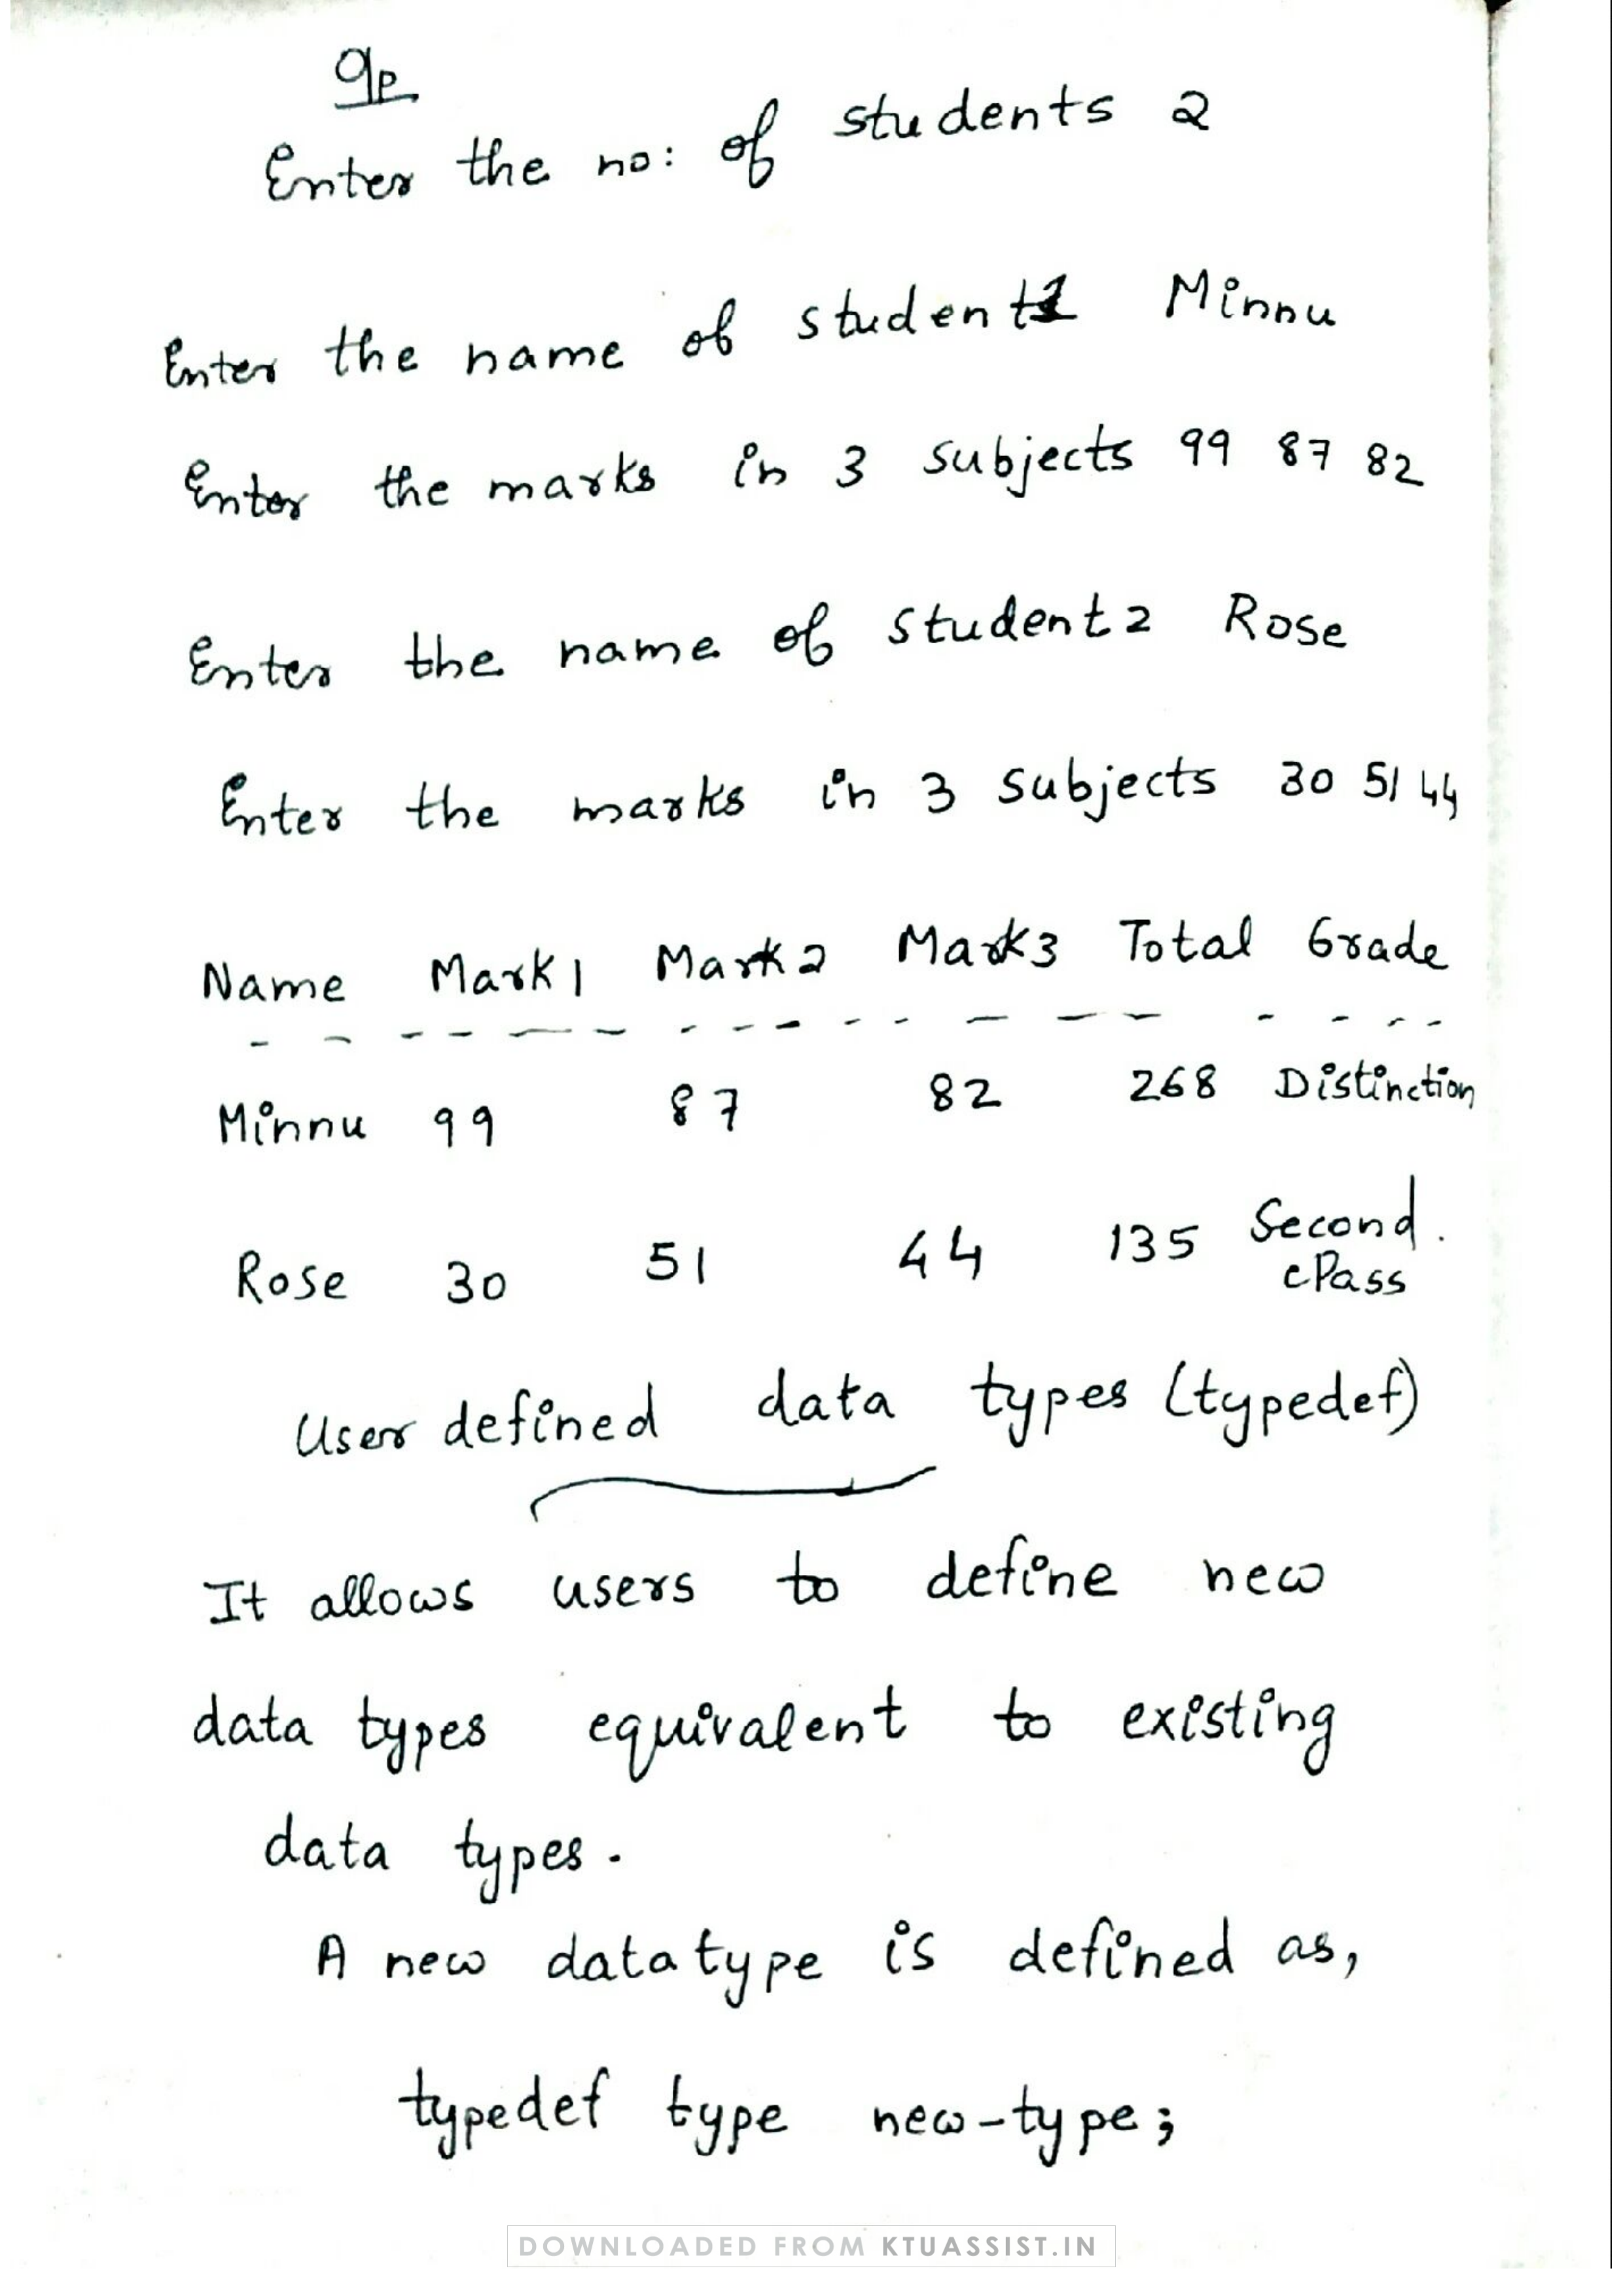 O/p
Enter the no: of students 2
Enter the name of student1 Minnu
Enter the marks in 3 subjects 99 87 82
Enter the name of student2 Rose
Enter the marks in 3 subjects 30 51 44
Name Mark1 Mark2 Mark3 Total Grade
- - - - - - - - - - - - - - - - - -
Minnu 99 87 82 268 Distinction
Rose 30 51 44 135 Second
cPass
User defined data types (typedef)
It allows users to define new
data types equivalent to existing
data types.
A new datatype is defined as,
typedef type new-type;
DOWNLOADED FROM KTUASSIST.IN